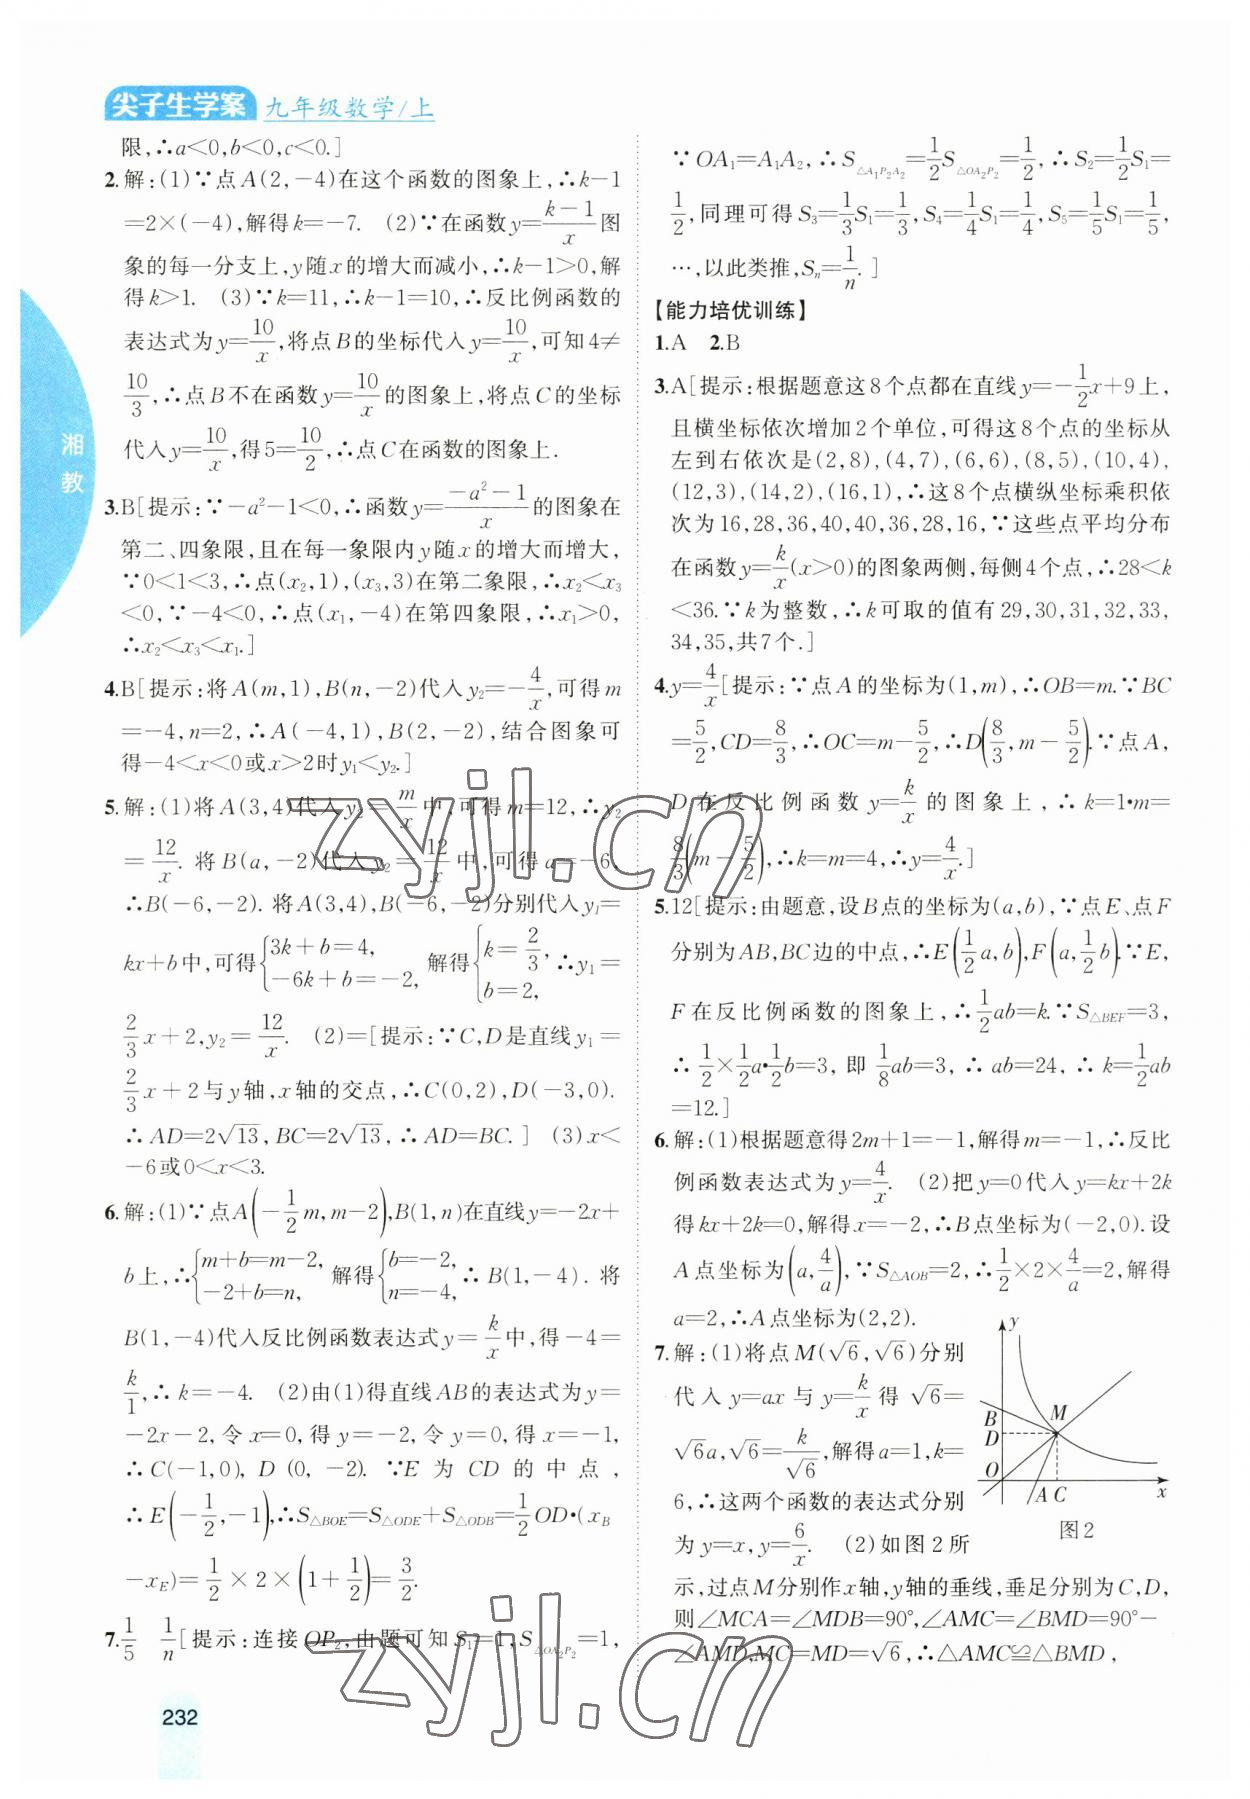 尖子生学案 九年级数学/上
限,∴a<0,b<0,c<0.]
2.解:(1)∵点A(2,-4)在这个函数的图象上,∴k-1
=2×(-4),解得k=-7. (2)∵在函数y=\frac{k-1}{x}图
象的每一分支上,y随x的增大而减小,∴k-1>0,解
得k>1. (3)∵k=11,∴k-1=10,∴反比例函数的
表达式为y=\frac{10}{x},将点B的坐标代入y=\frac{10}{x},可知4≠
\frac{10}{3},∴点B不在函数y=\frac{10}{x}的图象上,将点C的坐标
代入y=\frac{10}{x},得5=\frac{10}{2},∴点C在函数的图象上.
3.B[提示:∵-a²-1<0,∴函数y=\frac{-a²-1}{x}的图象在
第二、四象限,且在每一象限内y随x的增大而增大,
∵0<1<3,∴点(x₂,1),(x₃,3)在第二象限,∴x₂<x₃
<0,∵-4<0,∴点(x₁,-4)在第四象限,∴x₁>0,
∴x₂<x₃<x₁.]
4.B[提示:将A(m,1),B(n,-2)代入y₂=-\frac{4}{x},可得m
=-4,n=2,∴A(-4,1),B(2,-2),结合图象可
得-4<x<0或x>2时y₁<y₂.]
5.解:(1)将A(3,4)代入y₂=\frac{m}{x}中,可得m=12,∴y₂
=\frac{12}{x}. 将B(a,-2)代入y₂=\frac{12}{x}中,可得a=-6.
∴B(-6,-2). 将A(3,4),B(-6,-2)分别代入y₁=
kx+b中,可得{3k+b=4, -6k+b=-2, 解得{k=\frac{2}{3}, b=2, ∴y₁=
\frac{2}{3}x+2,y₂=\frac{12}{x}. (2)=[提示:∵C,D是直线y₁=
\frac{2}{3}x+2与y轴,x轴的交点,∴C(0,2),D(-3,0).
∴AD=2√13,BC=2√13,∴AD=BC.] (3)x<
-6或0<x<3.
6.解:(1)∵点A(-\frac{1}{2}m,m-2),B(1,n)在直线y=-2x+
b上,∴{m+b=m-2, -2+b=n, 解得{b=-2, n=-4, ∴B(1,-4). 将
B(1,-4)代入反比例函数表达式y=\frac{k}{x}中,得-4=
\frac{k}{1},∴k=-4. (2)由(1)得直线AB的表达式为y=
-2x-2,令x=0,得y=-2,令y=0,得x=-1,
∴C(-1,0),D(0,-2). ∵E为CD的中点,
∴E(-\frac{1}{2},-1),∴S_{△BOE}=S_{△ODE}+S_{△ODB}=\frac{1}{2}OD•(x_B
-x_E)=\frac{1}{2}×2×(1+\frac{1}{2})=\frac{3}{2}.
7.\frac{1}{5} \frac{1}{n}[提示:连接OP₂,由题可知S₁=1,S_{△OA₂P₂}=1,
232
∵OA₁=A₁A₂,∴S_{△A₁P₂A₂}=\frac{1}{2}S_{△OA₂P₂}=\frac{1}{2},∴S₂=\frac{1}{2}S₁=
\frac{1}{2},同理可得S₃=\frac{1}{3}S₁=\frac{1}{3},S₄=\frac{1}{4}S₁=\frac{1}{4},S₅=\frac{1}{5}S₁=\frac{1}{5},
…,以此类推,Sₙ=\frac{1}{n}.]
【能力培优训练】
1.A 2.B
3.A[提示:根据题意这8个点都在直线y=-\frac{1}{2}x+9上,
且横坐标依次增加2个单位,可得这8个点的坐标从
左到右依次是(2,8),(4,7),(6,6),(8,5),(10,4),
(12,3),(14,2),(16,1),∴这8个点横纵坐标乘积依
次为16,28,36,40,40,36,28,16,∵这些点平均分布
在函数y=\frac{k}{x}(x>0)的图象两侧,每侧4个点,∴28<k
<36.∵k为整数,∴k可取的值有29,30,31,32,33,
34,35,共7个.]
4.y=\frac{4}{x}[提示:∵点A的坐标为(1,m),∴OB=m.∵BC
=\frac{5}{2},CD=\frac{8}{3},∴OC=m-\frac{5}{2},∴D(\frac{8}{3},m-\frac{5}{2}).∵点A,
D在反比例函数y=\frac{k}{x}的图象上,∴k=1•m=
\frac{8}{3}(m-\frac{5}{2}),∴k=m=4,∴y=\frac{4}{x}.]
5.12[提示:由题意,设B点的坐标为(a,b),∵点E、点F
分别为AB,BC边的中点,∴E(\frac{1}{2}a,b),F(a,\frac{1}{2}b).∵E,
F在反比例函数的图象上,∴\frac{1}{2}ab=k.∵S_{△BEF}=3,
∴\frac{1}{2}×\frac{1}{2}a•\frac{1}{2}b=3,即\frac{1}{8}ab=3,∴ab=24,∴k=\frac{1}{2}ab
=12.]
6.解:(1)根据题意得2m+1=-1,解得m=-1,∴反比
例函数表达式为y=\frac{4}{x}. (2)把y=0代入y=kx+2k
得kx+2k=0,解得x=-2,∴B点坐标为(-2,0).设
A点坐标为(a,\frac{4}{a}),∵S_{△AOB}=2,∴\frac{1}{2}×2×\frac{4}{a}=2,解得
a=2,∴A点坐标为(2,2).
7.解:(1)将点M(√6,√6)分别
代入y=ax与y=\frac{k}{x}得√6=
√6a,√6=\frac{k}{√6},解得a=1,k=
6,∴这两个函数的表达式分别
为y=x,y=\frac{6}{x}. (2)如图2所
示,过点M分别作x轴,y轴的垂线,垂足分别为C,D,
则∠MCA=∠MDB=90°,∠AMC=∠BMD=90°-
∠AMD,MC=MD=√6,∴△AMC≌△BMD,
y
B
D
M
O
A C
x
图2
湘教
zyjl.cn
zyjl.cn